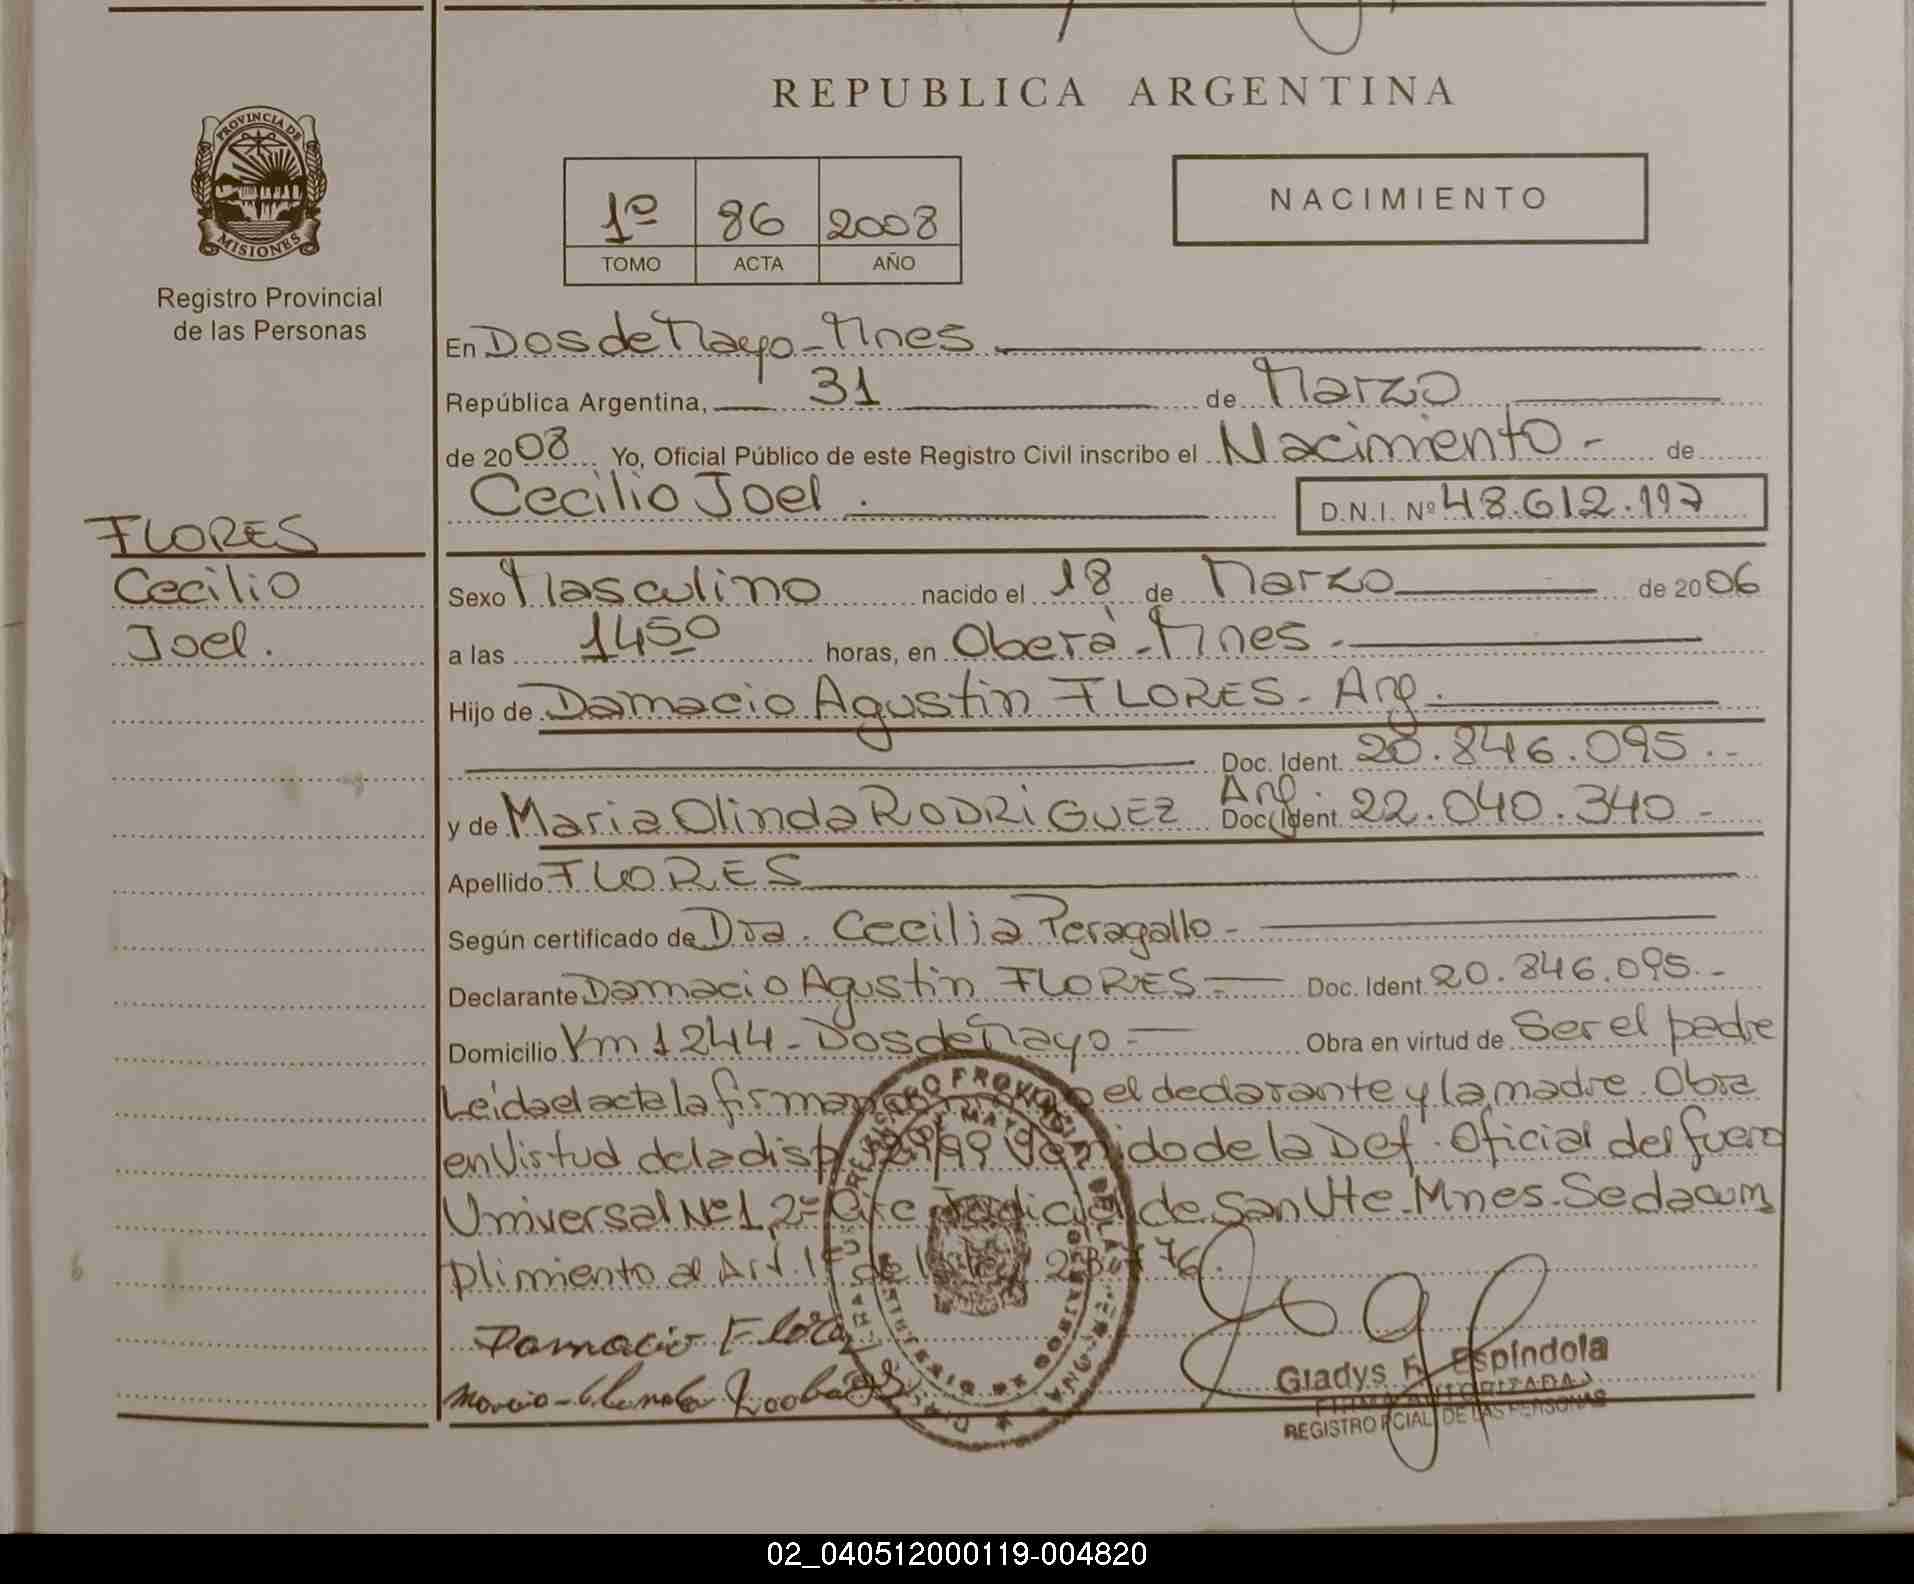 REPUBLICA ARGENTINA
PROVINCIA DE MISIONES
Registro Provincial
de las Personas
1º 86 2008
TOMO ACTA AÑO
NACIMIENTO
En Dos de Mayo - Mnes
República Argentina, 31 de Marzo
de 2008 Yo, Oficial Público de este Registro Civil inscribo el Nacimiento - de
Cecilio Joel. D.N.I. Nº 48.612.197
FLORES
Cecilio
Joel.
Sexo Masculino nacido el 18 de Marzo de 2006
a las 1450 horas, en Oberá - Mnes -
Hijo de Damacio Agustin FLORES - Arg.
Doc. Ident. 20.846.095.-
Arg.
y de Maria Olinda RODRIGUEZ Doc. Ident. 22.040.340 -
Apellido FLORES
Según certificado de Dra. Cecilia Peragallo -
Declarante Damacio Agustin FLORES - Doc. Ident. 20.846.095.-
Domicilio Km 1244 - Dos de Mayo - Obra en virtud de Ser el padre
Leida el acta la firman el declarante y la madre. Obra
en Virtud de la disp. /99 de la Def. Oficial del fuero
Universal Nº 1, 2º de San Vte. Mnes. Se da cum
plimiento al Art. 1º de
Damacio Flores
Gladys F. Espíndola
FIRMA AUTORIZADA
REGISTRO PCIAL. DE LAS PERSONAS
02_040512000119-004820